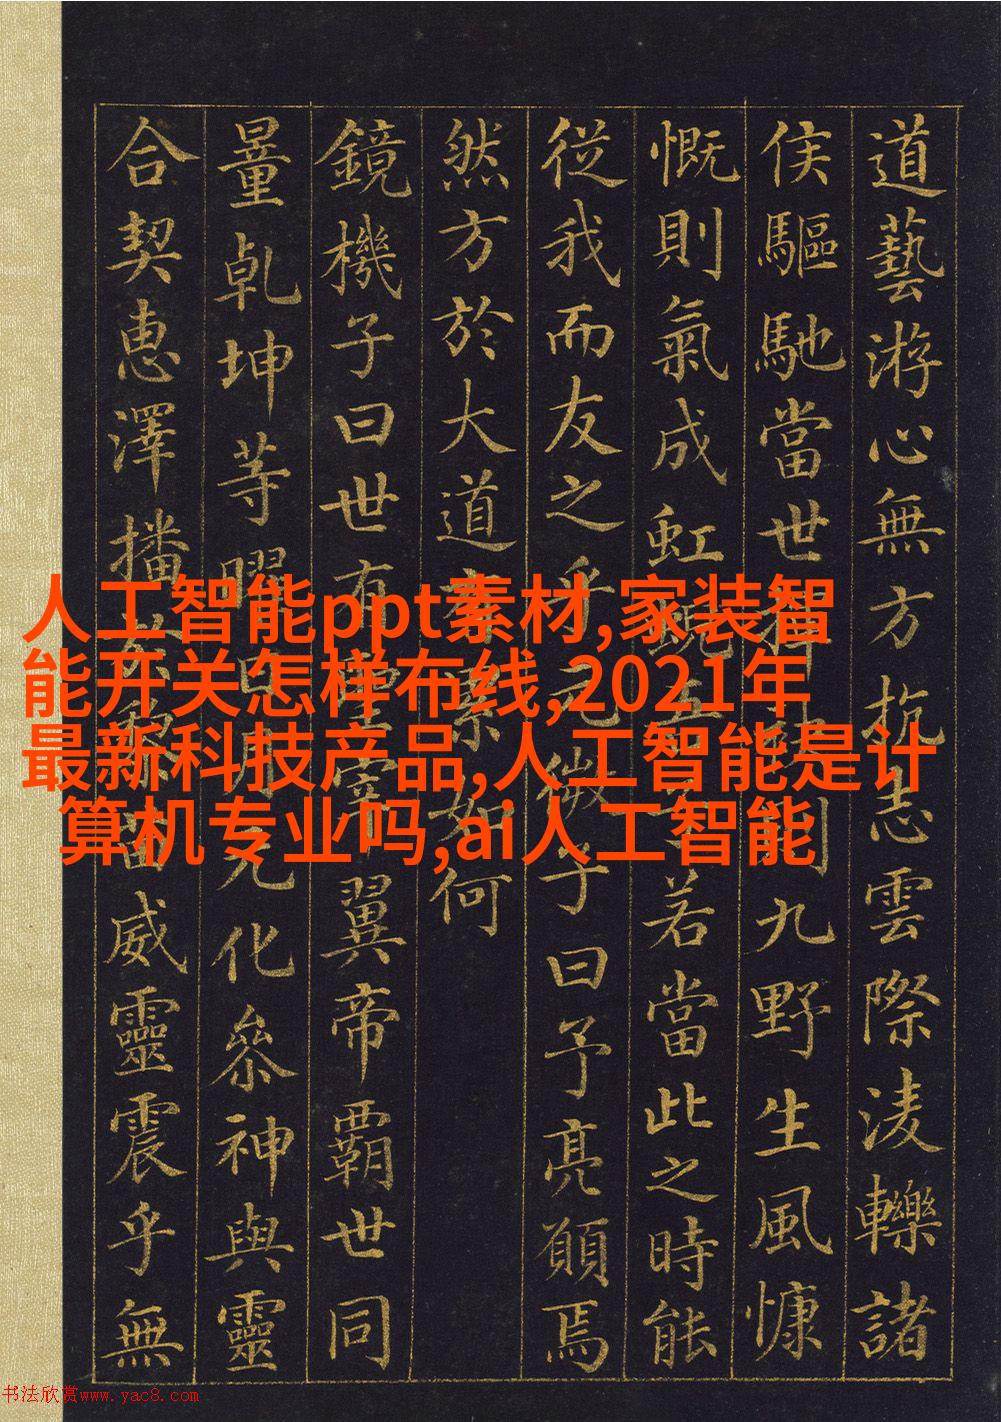 道藝游心無方抗志雲際淩轢諸
侯驅馳當世 則九野生風慷
慨則氣成虹蜺 若當此之時能
從我而友之乎元微子曰予亮願焉
然方於大道有累如何
鏡機子曰世有聖宰翼帝霸世同
量乾坤等曜日月元化參神與靈
合契惠澤播於黎苗威靈震乎無
人工智能ppt素材,家装智
能开关怎样布线,2021年
最新科技产品,人工智能是计
算机专业吗,ai人工智能
书法欣赏www.yac8.com